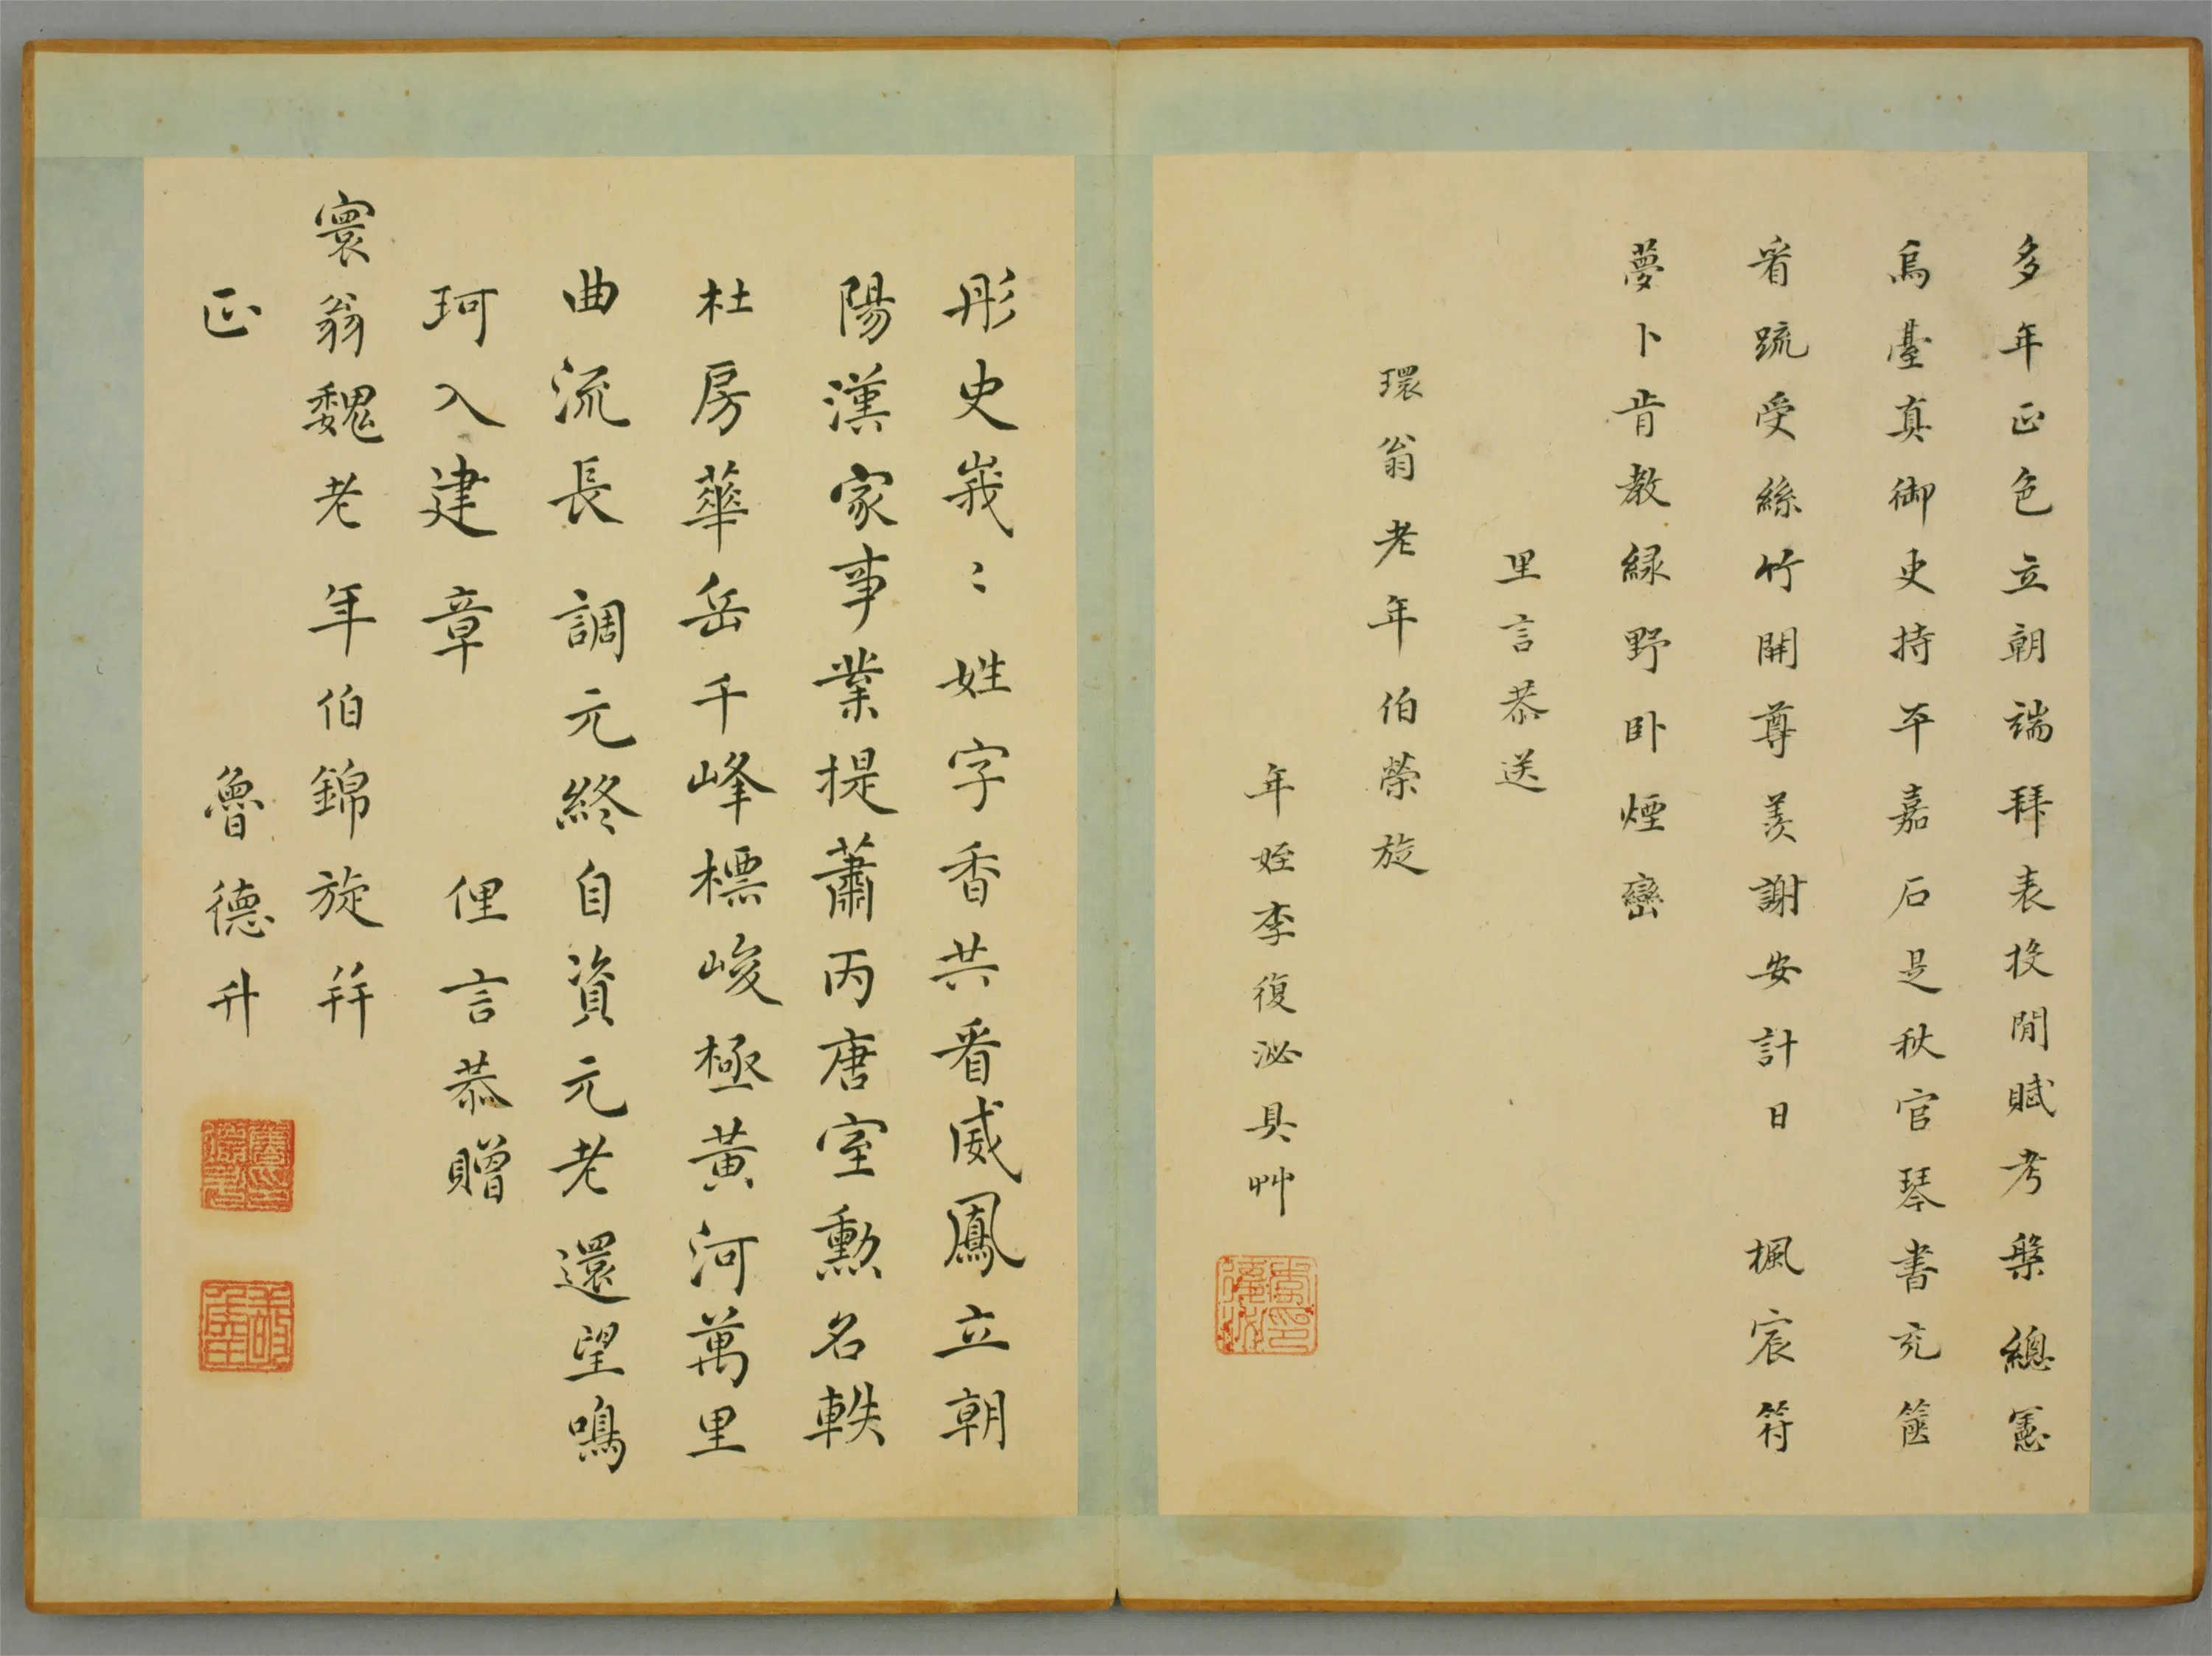 多年正色立朝端拜表投閒賦考槃總憲
烏臺真御史持平嘉石是秋官琴書充篋
看疏受絲竹開尊羨謝安計日楓宸符
夢卜肯教緑野卧煙巒
里言恭送
環翁老年伯榮旋
年姪李復泌具艸
彤史峩〻姓字香共看威鳳立朝
陽漢家事業提蕭丙唐室勲名軼
杜房華岳千峰標峻極黃河萬里
曲流長調元終自資元老還望鳴
珂入建章
俚言恭贈
寰翁魏老年伯錦旋并
正
魯德升